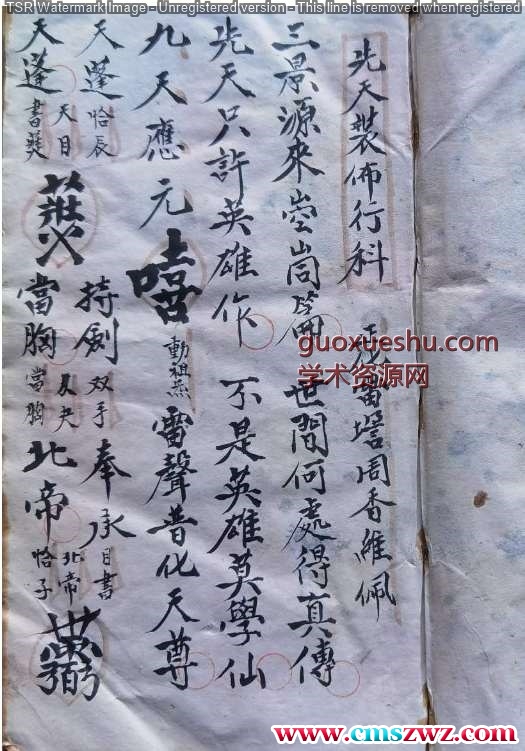 TSR Watermark Image - Unregistered version - This line is removed when registered
先天裝佈行科
周香維佩
三景源來 世間何處得真傳
先天只許英雄作 不是英雄莫學仙
九天應元 嘻 動祖炁 雷聲普化天尊
天蓬 恰辰 持劍 双手 奉承 目書
天蓬 天目 書 當胸 當胸 北帝 北帝 恰子
guoxueshu.com
学术资源网
www.cmszwz.com